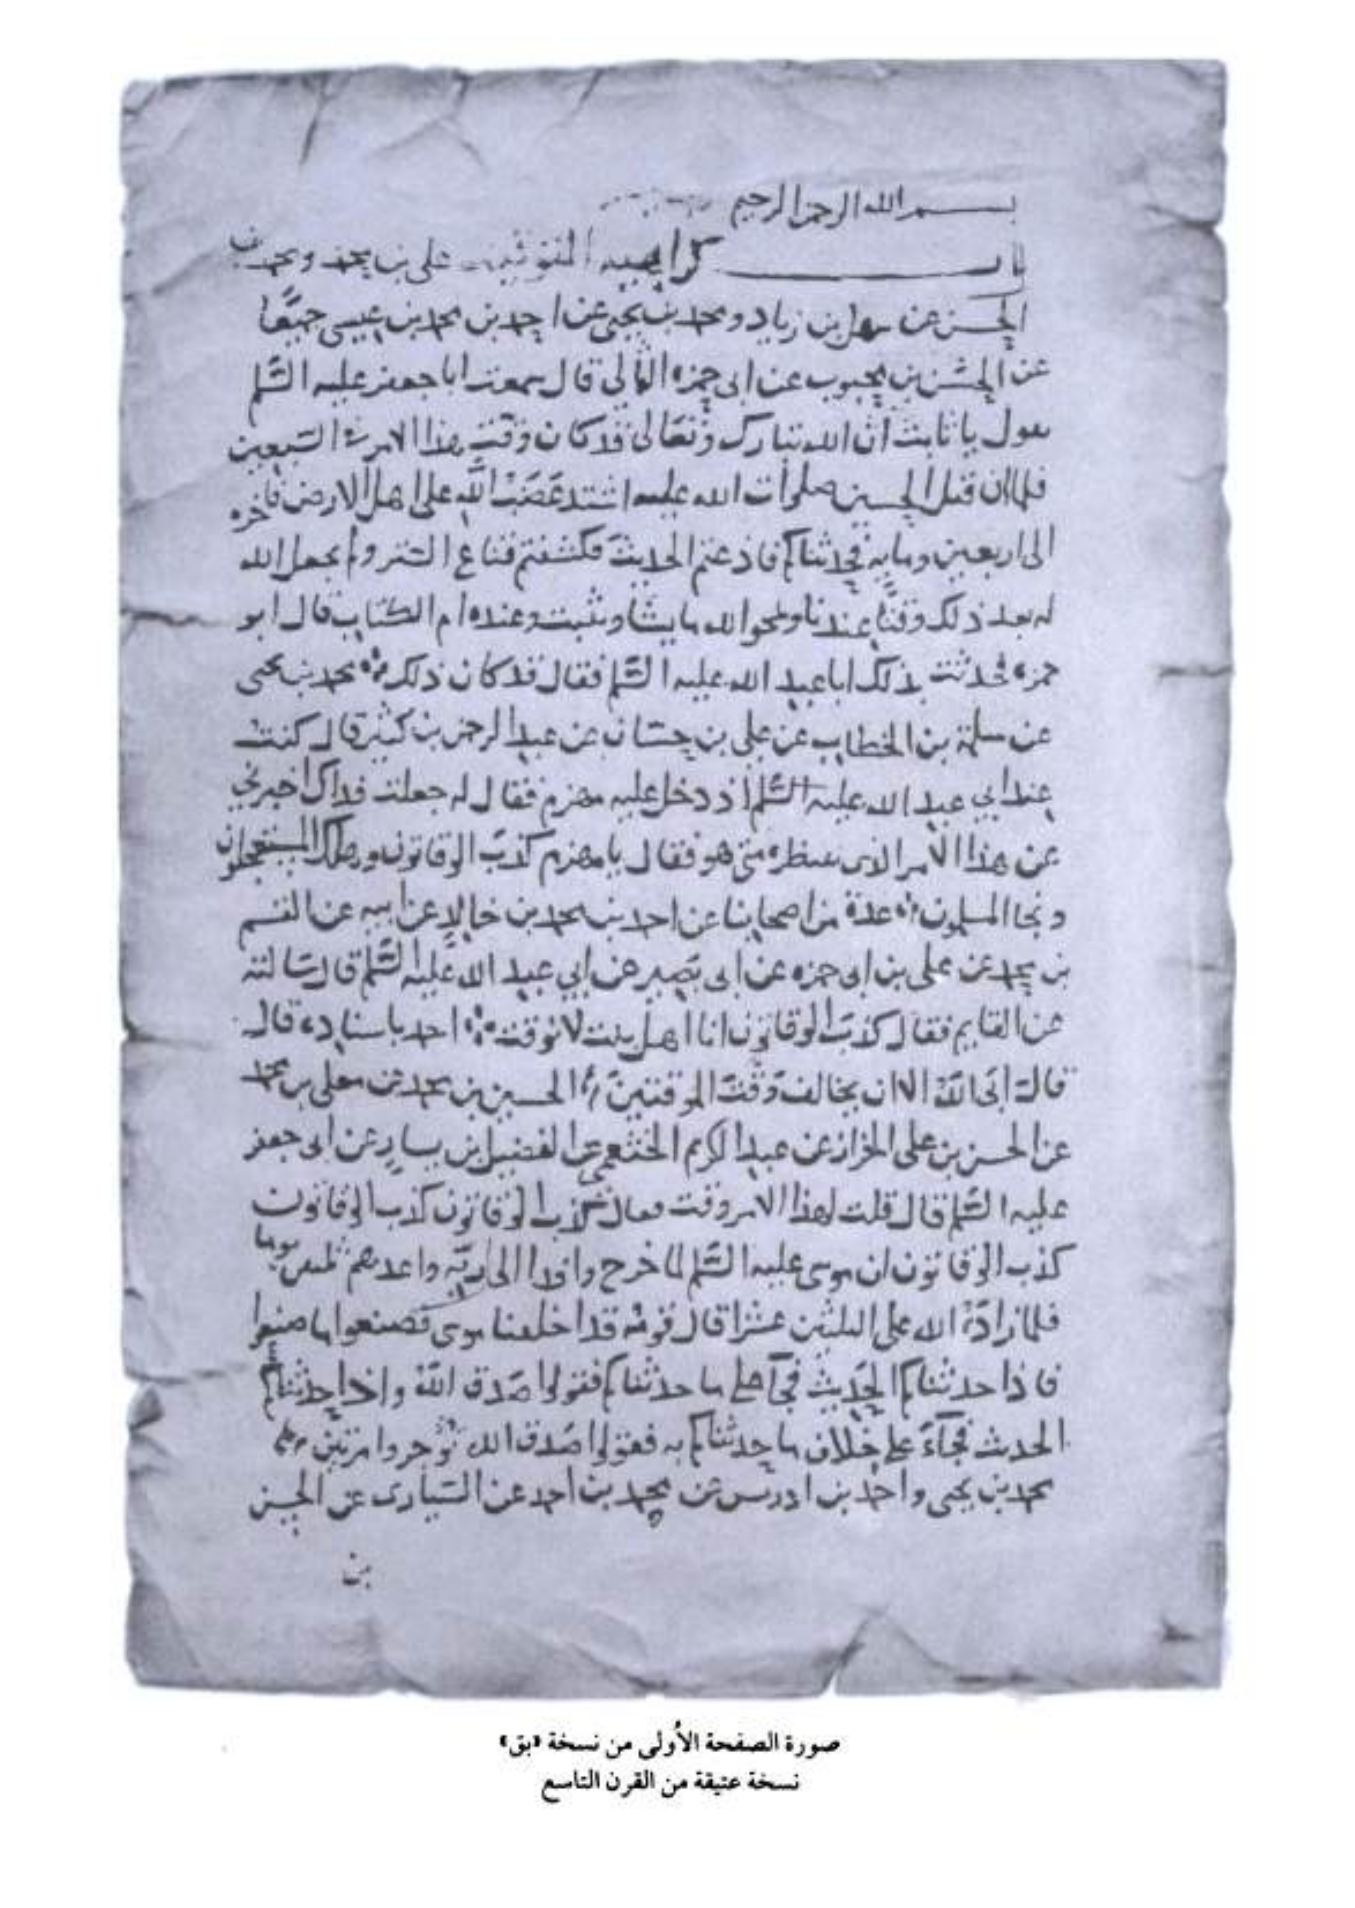 بسم الله الرحمن الرحيم
باب كراهية التوقيت علي بن محمد ومحمد بن
الحسن عن سهل بن زياد ومحمد بن يحيى عن احمد بن محمد بن عيسى جميعًا
عن الحسن بن محبوب عن ابى حمزه الثمالي قال سمعت ابا جعفر عليه السلم
يقول يا ثابت ان الله تبارك وتعالى قد كان وقت هذا الامر في السبعين
فلما ان قتل الحسين صلوات الله عليه اشتد غضب الله على اهل الارض فاخره
الى اربعين ومايه فحدثناكم فاذعتم الحديث فكشفتم قناع الستر ولم يجعل الله
له بعد ذلك وقتًا عندنا ويمحوا الله ما يشا ويثبت وعنده ام الكتاب قال ابو
حمزه فحدثت بذلك ابا عبد الله عليه السلم فقال قد كان ذلك محمد بن يحيى
عن سلمة بن الخطاب عن علي بن حسان عن عبد الرحمن بن كثير قال كنت
عند ابي عبد الله عليه السلم اذ دخل عليه مهزم فقال له جعلت فداك اخبرني
عن هذا الامر الذى ننتظره متى هو فقال يا مهزم كذب الوقاتون وهلك المستعجلون
ونجا المسلمون عدة من اصحابنا عن احمد بن محمد بن خالد عن ابيه عن القسم
بن محمد عن علي بن ابى حمزه عن ابى بصير عن ابي عبد الله عليه السلم قال سالته
عن القايم فقال كذب الوقاتون انا اهل بيت لا نوقت احمد باسناده قال
قال ابى الله الا ان يخالف وقت الموقتين الحسين بن محمد عن معلى بن محمد
عن الحسن بن علي الخزاز عن عبد الكريم الخثعمي عن الفضيل بن يسار عن ابى جعفر
عليه السلم قال قلت لهذا الامر وقت فقال كذب الوقاتون كذب الوقاتون
كذب الوقاتون ان موسى عليه السلم لما خرج وافدا الى ربه واعدهم ثلثين يوما
فلما زاده الله على الثلثين عشرا قال قومه قد اخلفنا موسى فصنعوا ما صنعوا
فاذا حدثناكم الحديث فجآ على ما حدثناكم فقولوا صدق الله واذا حدثناكم
الحديث فجآء على خلاف ما حدثناكم به فقولوا صدق الله تؤجروا مرتين
محمد بن يحيى واحمد بن ادريس عن محمد بن احمد عن السيارى عن الحسن
بن
صورة الصفحة الأولى من نسخة «بق»
نسخة عتيقة من القرن التاسع